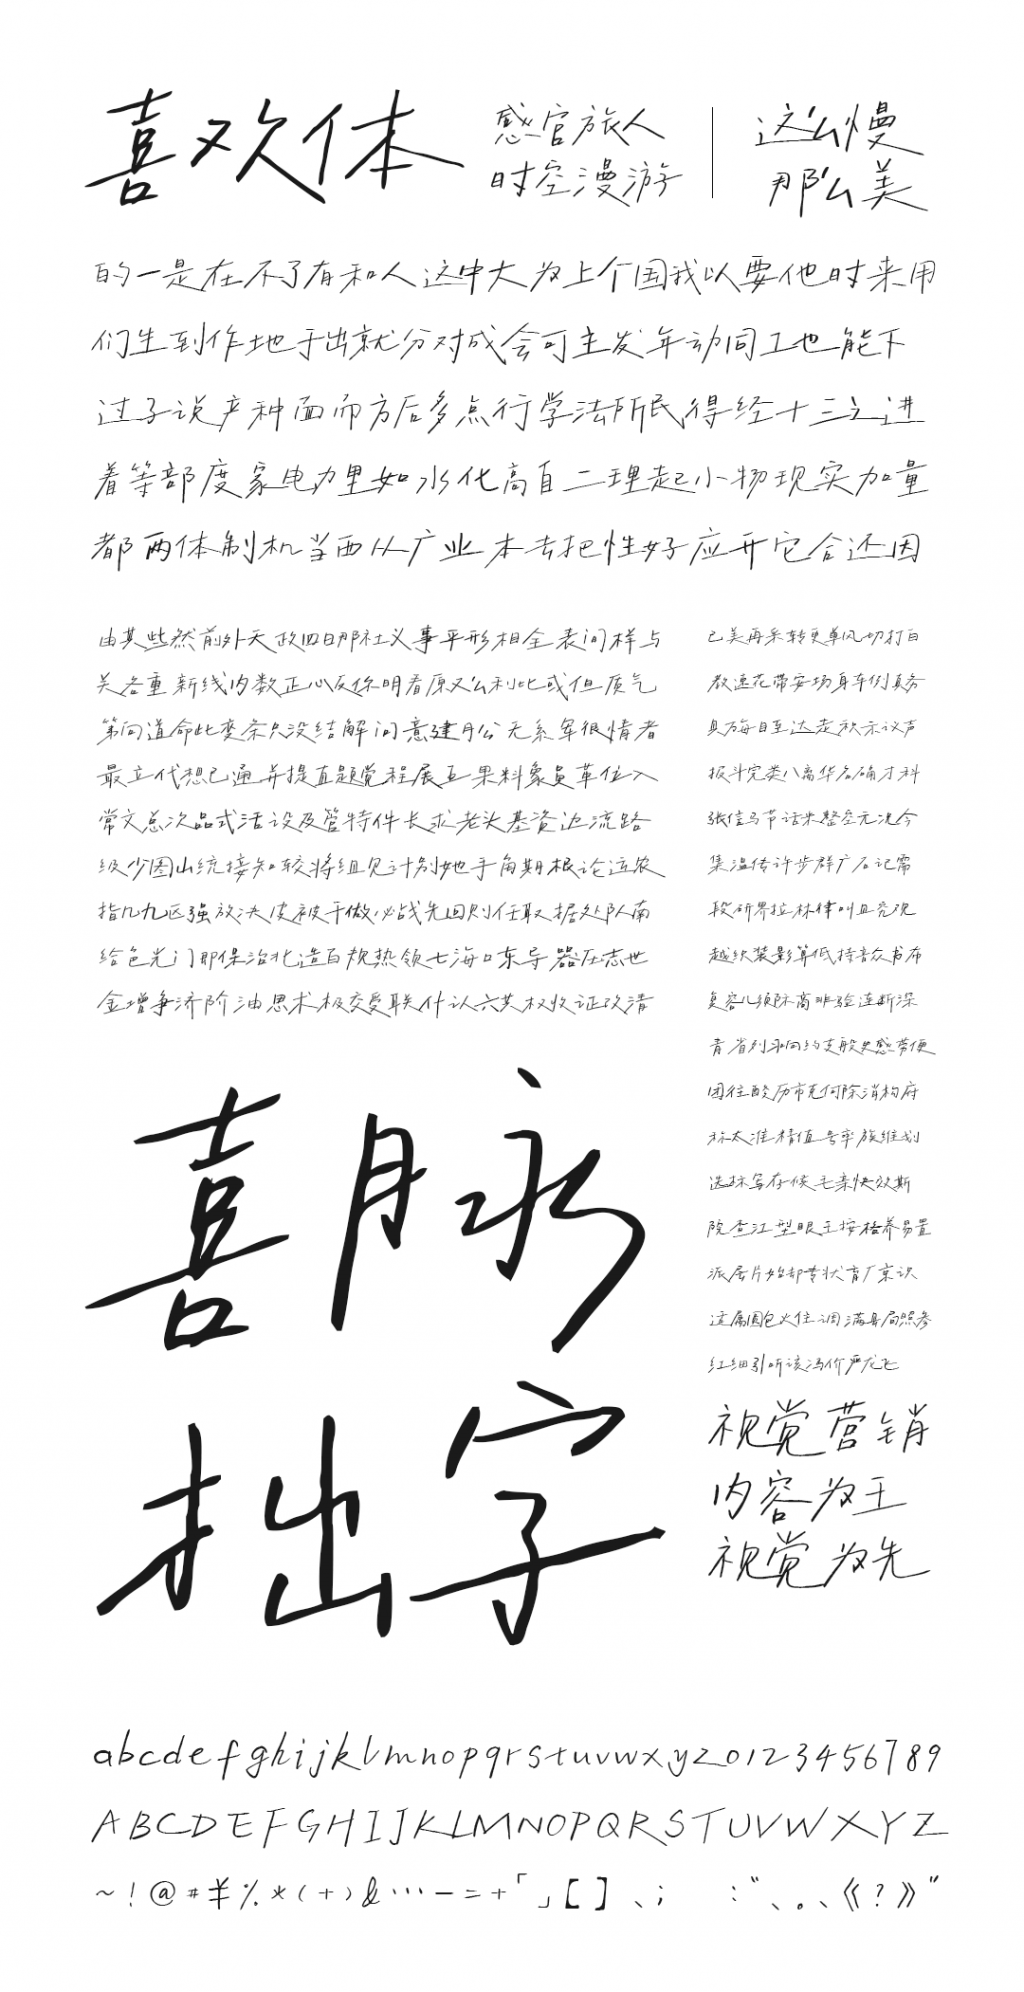 喜欢体
感官旅人
时空漫游
这么慢
那么美
的一是在不了有和人这中大为上个国我以要他时来用
们生到作地于出就分对成会可主发年动同工也能下
过子说产种面而方后多点行学法所民得经十三之进
着等部度家电力里如水化高自二理起小物现实加量
都两体制机当西从广业本去把性好应开它合还因
由其些然前外天政四日那社义事平形相全表间样与
关各重新线内数正心反你明看原又么利比或但质气
第向道命此变条只没结解问意建月公无系军很情者
最立代想已通并提直题党程展五果料象员革位入
常文总次品式活设及管特件长求老头基资边流路
级少图山统接知较将组见计别她手角期根论运农
指几九区强放决皮被干做必战先回则任取据处队南
给色光门即保治北造百规热领七海口东导器压志世
金增争济阶油思术极交受联什认六共权收证改清
己美再采转更单风切打白
教速花带安场身车例真务
具万每目至达走积示议声
报斗完类八离华名确才科
张信马节话米整空元况今
集温传许步群广石记需
段研界拉林律叫且究观
越织装影算低持音众书布
复容儿须际商非验连断深
青省列永向约支般史感劳便
团往酸历市克何除消构府
称太准精值号率族维划
选标写存候毛亲快效斯
院查江型眼王按格养易置
派层片始却专状育厂京识
适属圆包火住调满县局照参
红细引听该冯价严龙飞
喜脉
拙字
视觉营销
内容为王
视觉为先
abcdefghijklmnopqrstuvwxyz0123456789
ABCDEFGHIJKLMNOPQRSTUVWXYZ
~!@#¥%*(+)&…—=+「」【】、; :“、。、《?》”